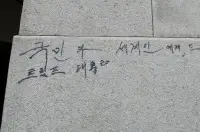 국민과 세계인 에게 드
트럼프 대통령